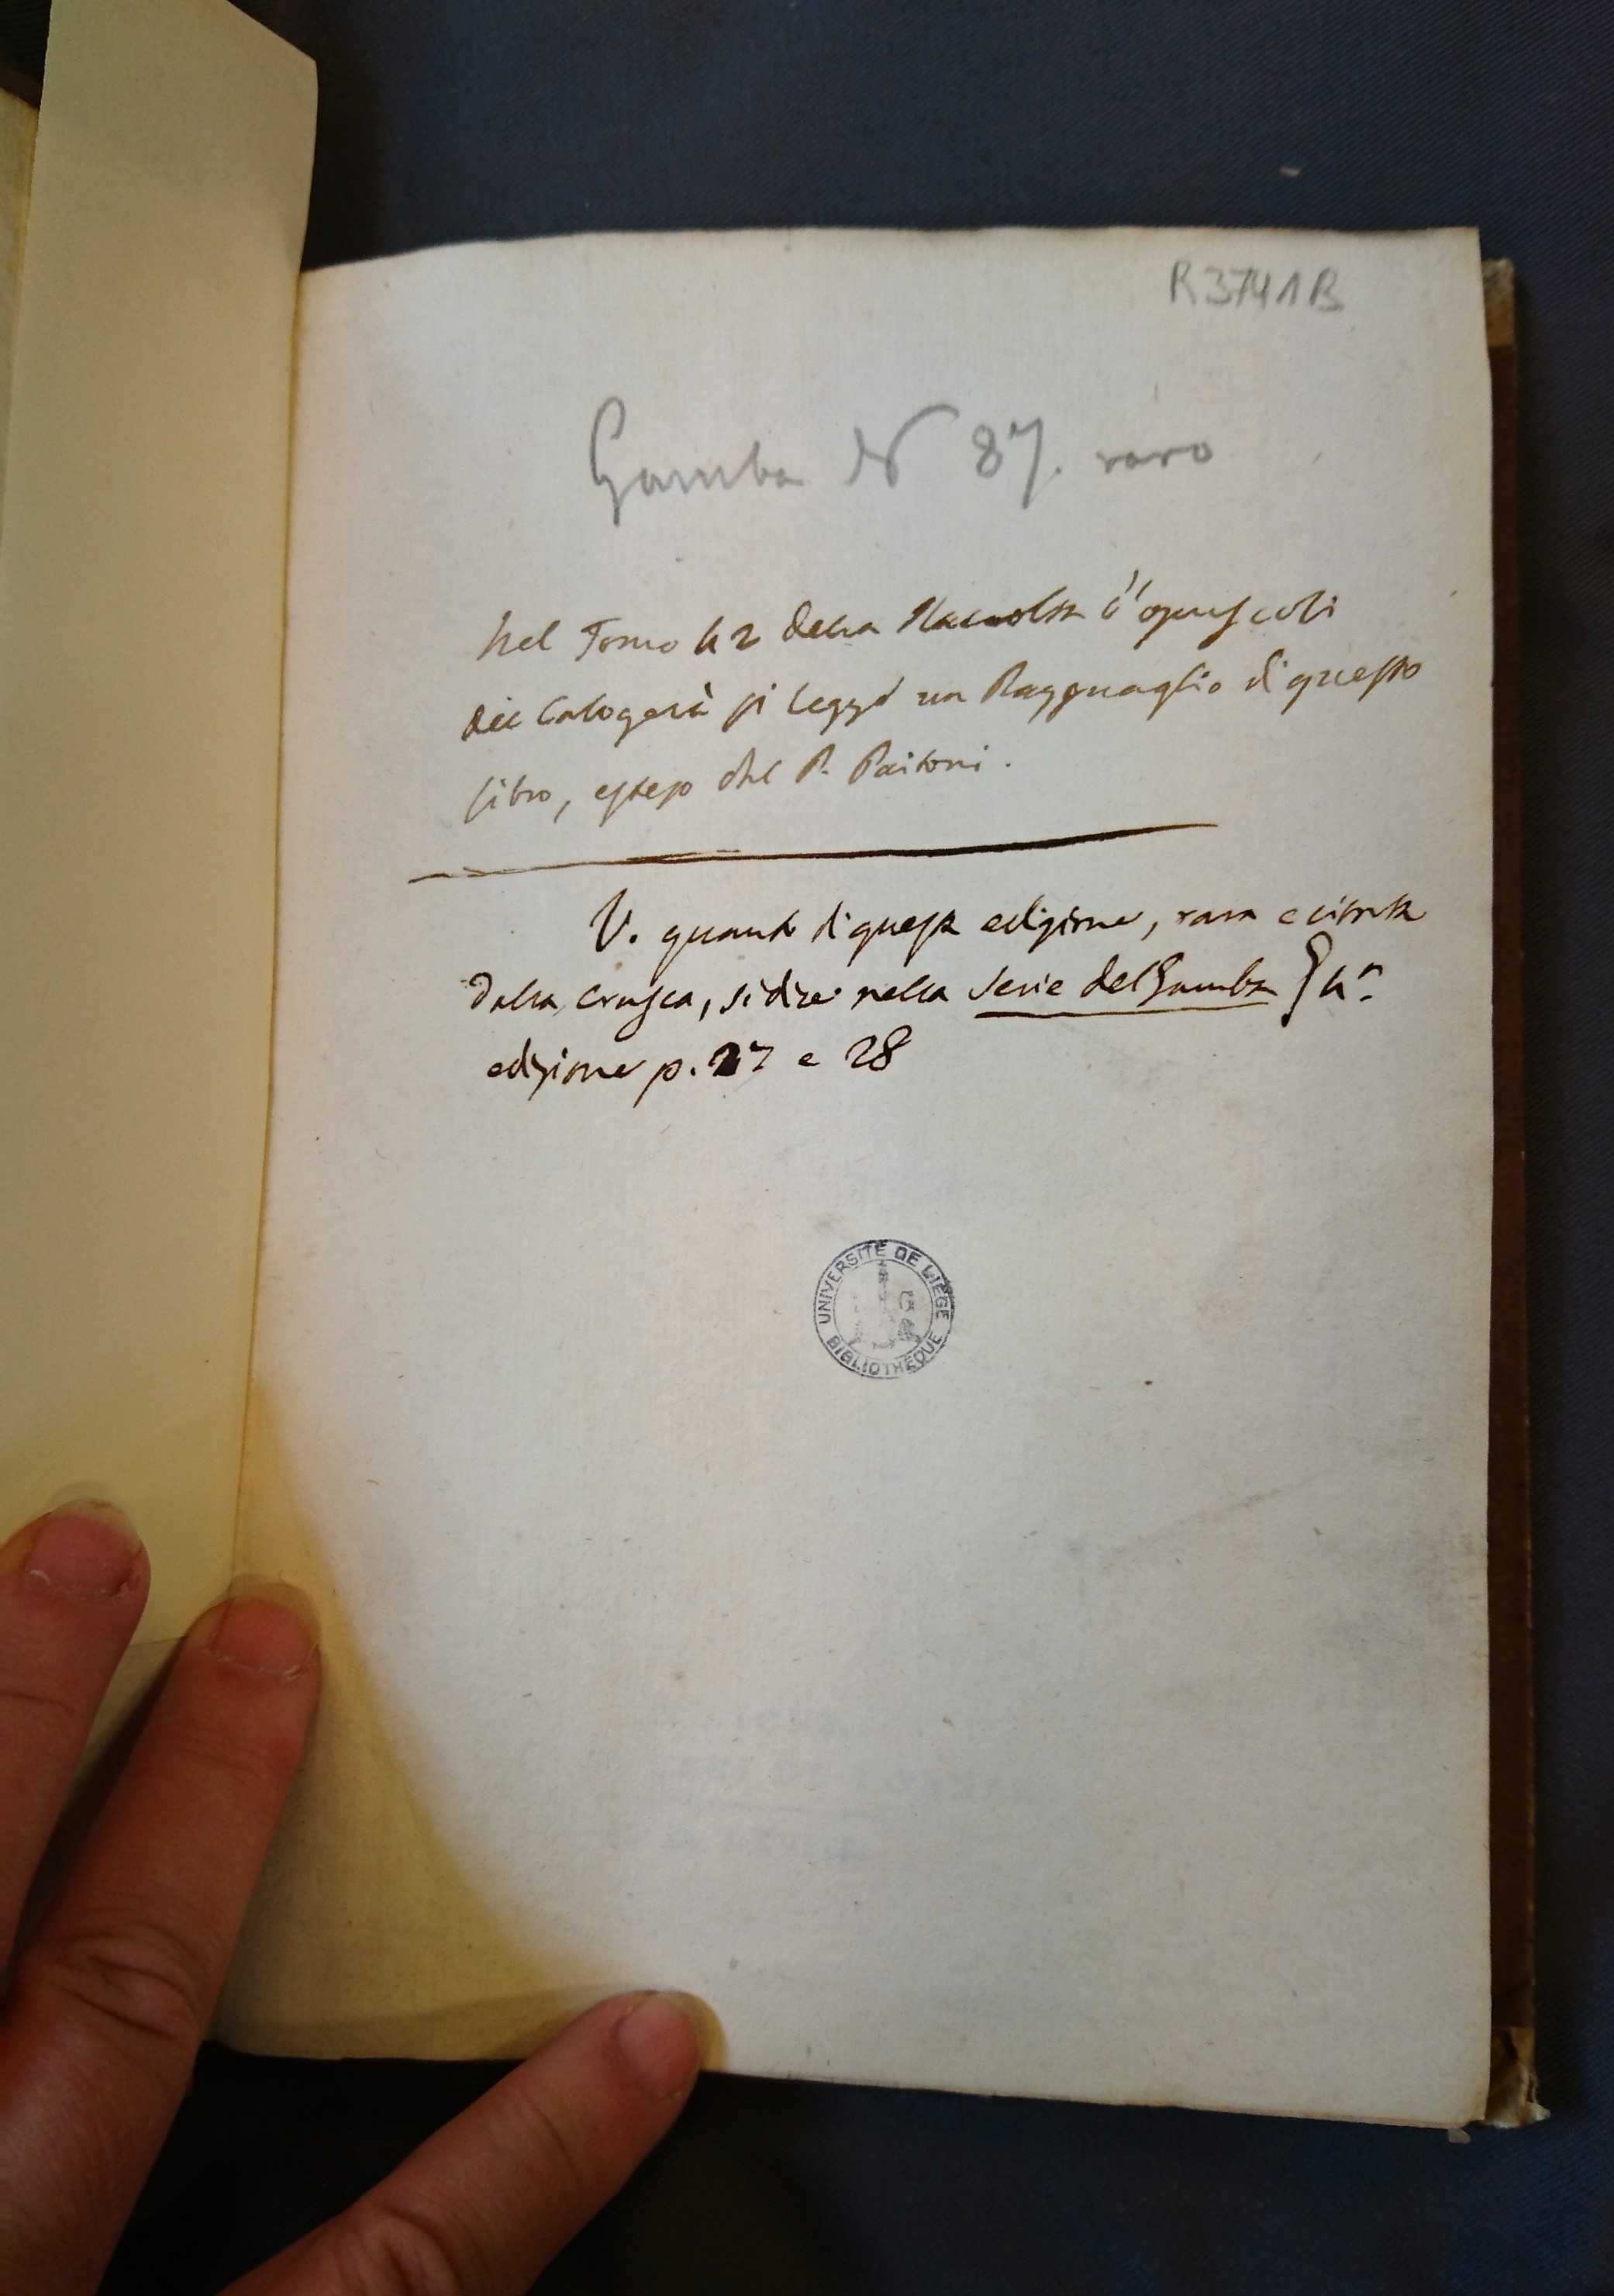 R3741B
Gamba N 87. raro
Nel Tomo 42 della Raccolta d'opuscoli
del Calogerà si legge un Ragguaglio di questo
libro, esteso dal P. Paitoni.
V. quanto di questa edizione, rara e citata
dalla Crusca, si dice nella Serie del Gamba 4a.
edizione p. 27 e 28
UNIVERSITÉ DE LIÈGE
BIBLIOTHÈQUE